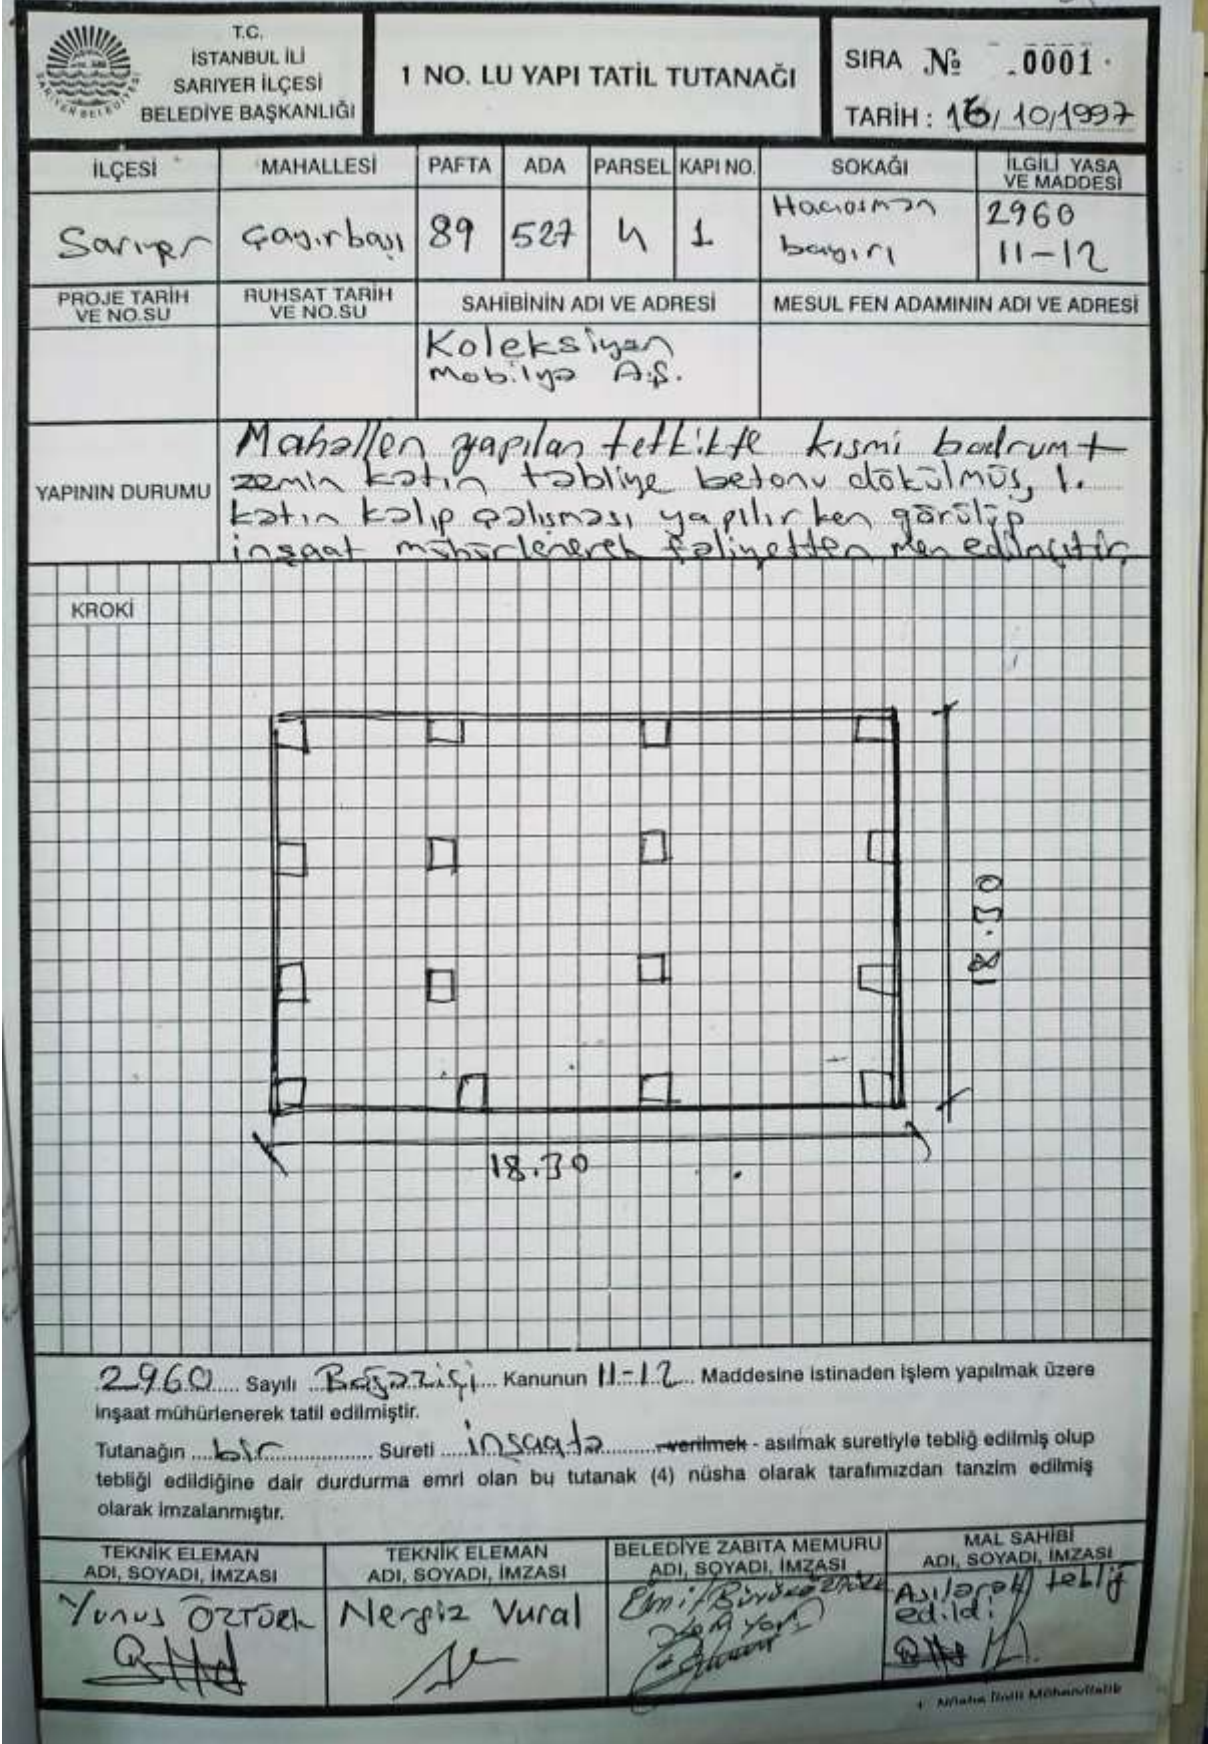 T.C.
İSTANBUL İLİ
SARIYER İLÇESİ
BELEDİYE BAŞKANLIĞI
1 NO. LU YAPI TATİL TUTANAĞI
SIRA № 0001
TARİH : 16/10/1997
İLÇESİ MAHALLESİ PAFTA ADA PARSEL KAPI NO. SOKAĞI İLGİLİ YASA VE MADDESİ
Sarıyer Çayırbaşı 89 527 4 1 Hacıosman bayırı 2960 11-12
PROJE TARİH VE NO.SU RUHSAT TARİH VE NO.SU SAHİBİNİN ADI VE ADRESİ MESUL FEN ADAMININ ADI VE ADRESİ
Koleksiyon
Mobilya A.Ş.
YAPININ DURUMU
Mahallen yapılan tetkikte kısmi bodrum+
zemin katın tabliye betonu dökülmüş, 1.
katın kalıp çalışması yapılırken görülüp
inşaat mühürlenerek faliyetten men edilmiştir.
KROKİ
18.30
18.30
2960 Sayılı Boğaziçi Kanunun 11-12 Maddesine istinaden işlem yapılmak üzere
inşaat mühürlenerek tatil edilmiştir.
Tutanağın bir Sureti inşaata verilmek - asılmak suretiyle tebliğ edilmiş olup
tebliği edildiğine dair durdurma emri olan bu tutanak (4) nüsha olarak tarafımızdan tanzim edilmiş
olarak imzalanmıştır.
TEKNİK ELEMAN ADI, SOYADI, İMZASI
Yunus ÖZTÜRK
TEKNİK ELEMAN ADI, SOYADI, İMZASI
Nergiz Vural
BELEDİYE ZABITA MEMURU ADI, SOYADI, İMZASI
MAL SAHİBİ ADI, SOYADI, İMZASI
Asılarak tebliğ
edildi